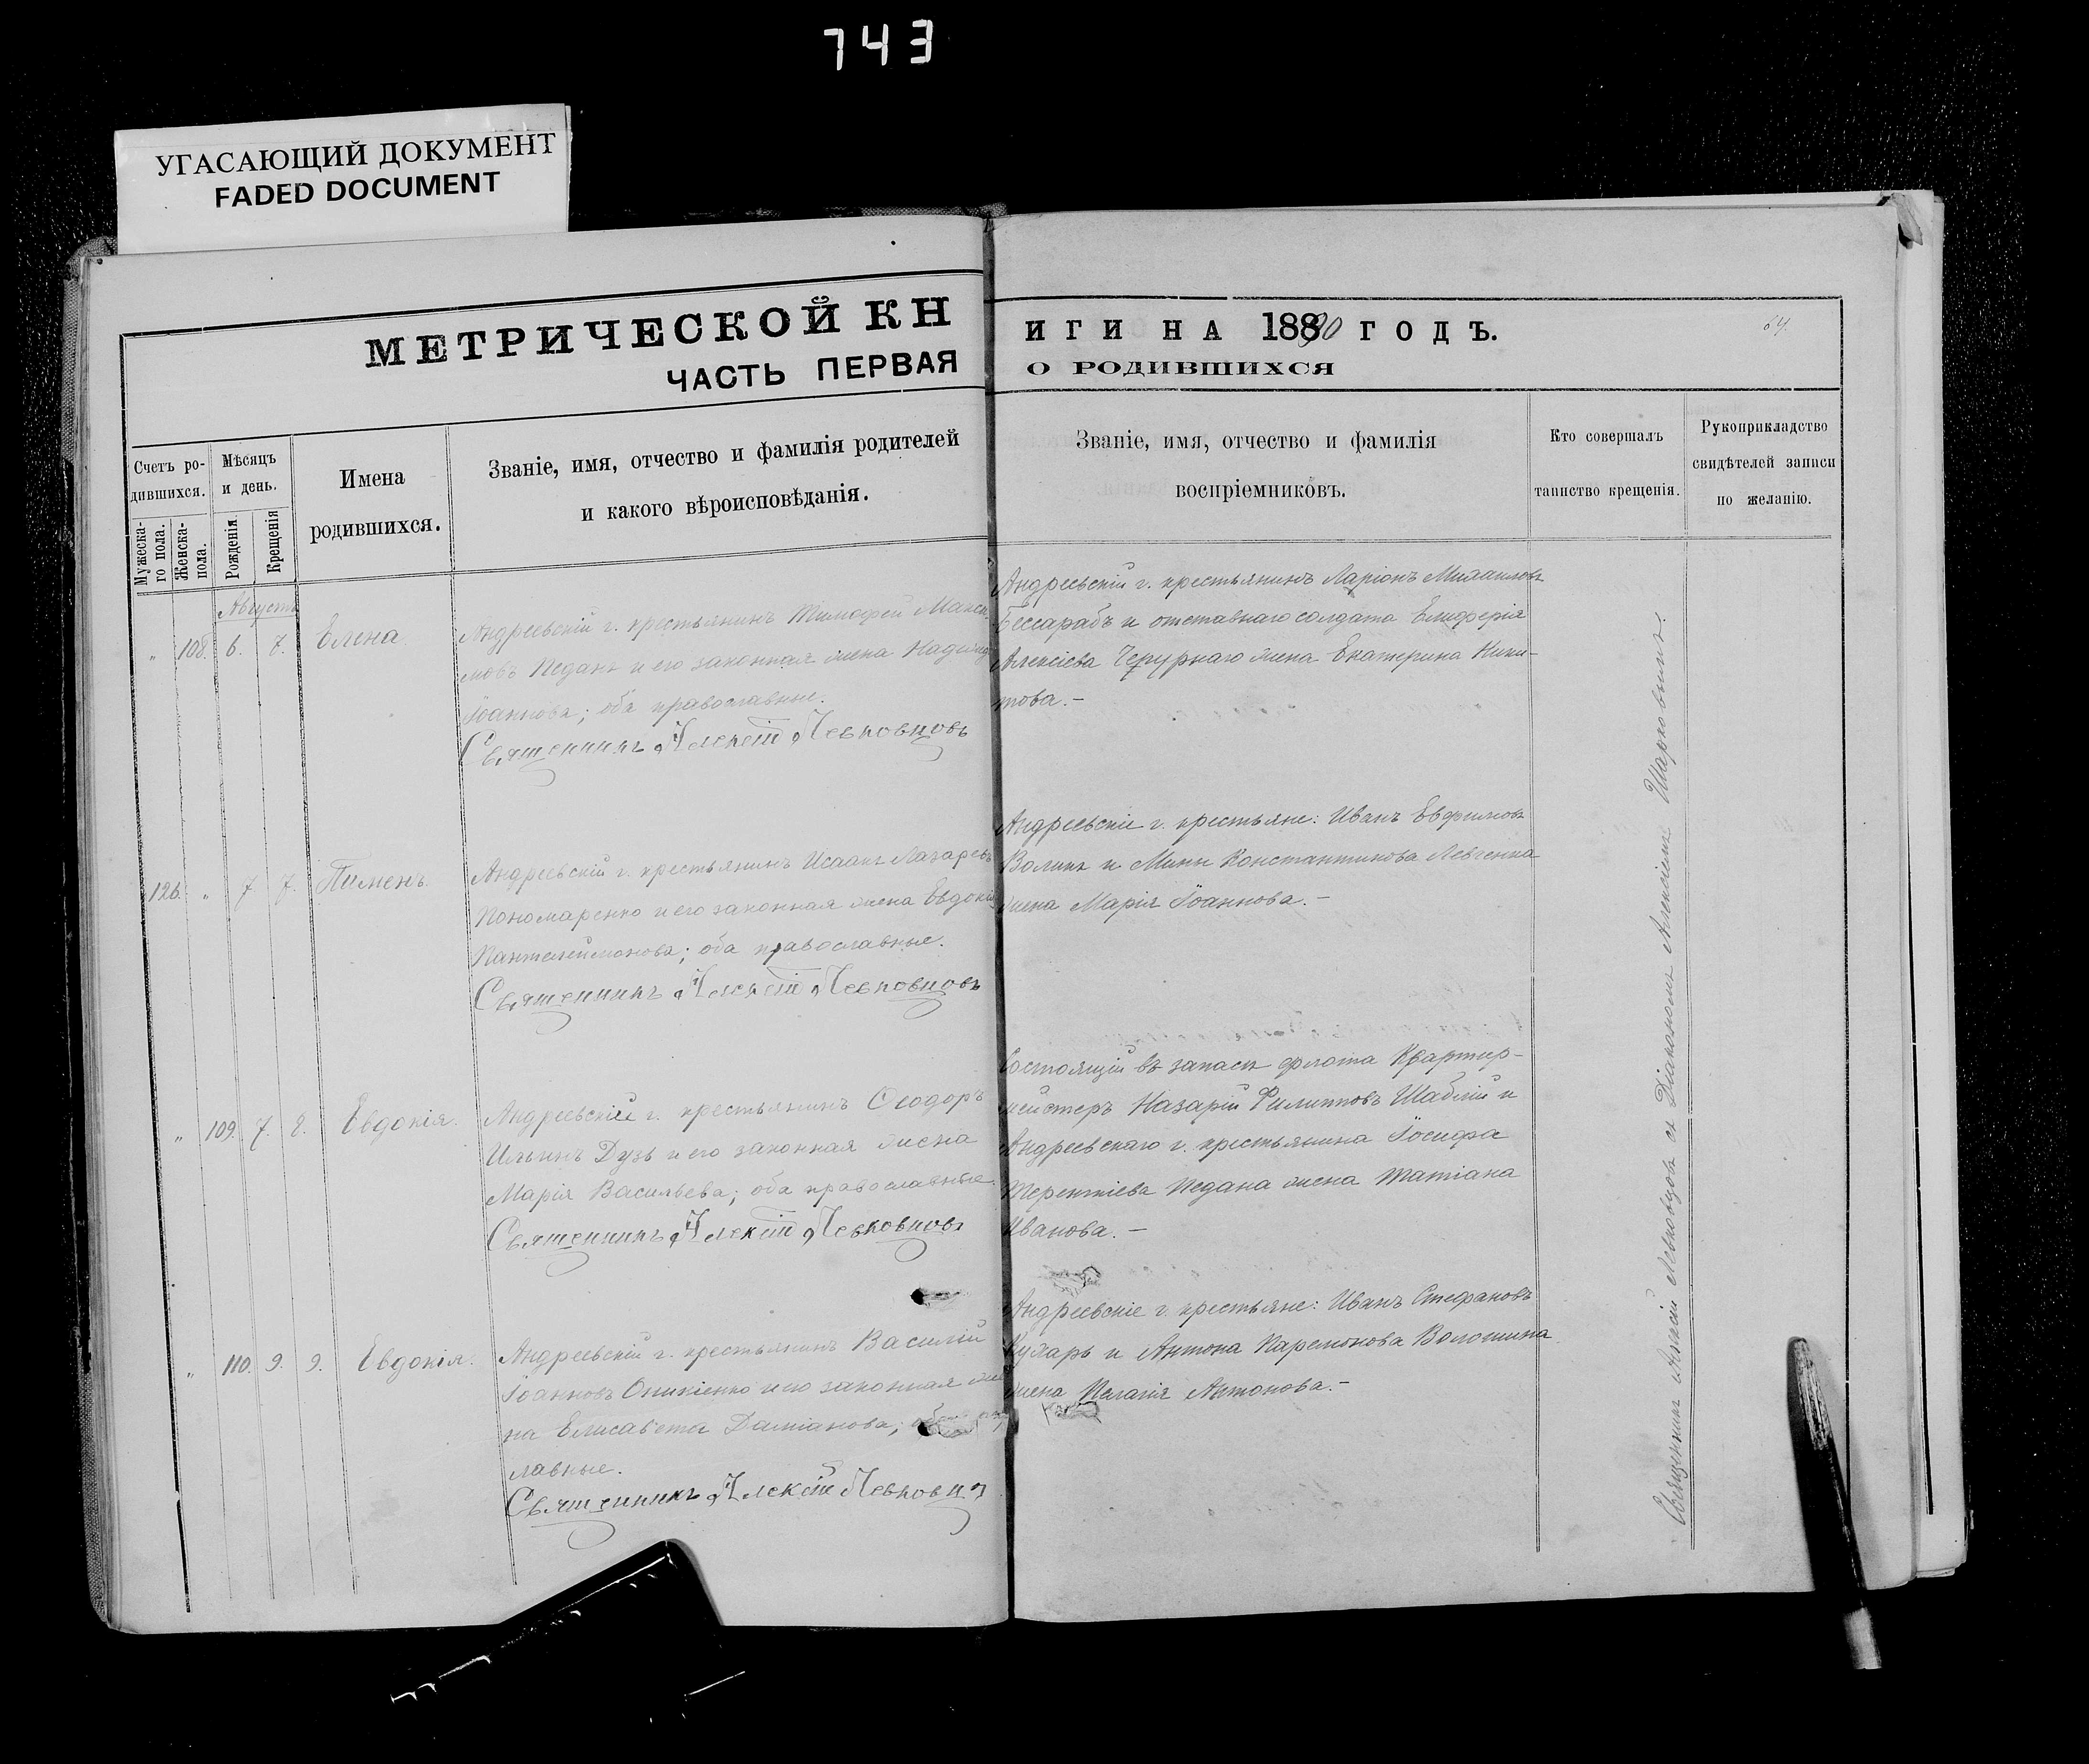 743
УГАСАЮЩИЙ ДОКУМЕНТ
FADED DOCUMENT
МЕТРИЧЕСКОЙ КН
ЧАСТЬ ПЕРВАЯ
ИГИ НА 1890 ГОДЪ.
О РОДИВШИХСЯ
64.
Счетъ ро-
дившихся.
Мужеска-
го пола.
Женска-
пола.
Мѣсяцъ
и день.
Рожденія
Крещенія
Имена
родившихся.
Званіе, имя, отчество и фамилія родителей
и какого вѣроисповѣданія.
Званіе, имя, отчество и фамилія
воспріемниковъ.
Кто совершалъ
таинство крещенія.
Рукоприкладство
свидѣтелей записи
по желанію.
Августъ
" 108. 6. 7. Елена
Андреевскій г. крестьянинъ Тимофей Макси-
мовъ Педанъ и его законная жена Надежда
Іоаннова; оба православные.
Священникъ Алексій Левковцовъ
Андреевскій г. крестьянинъ Ларіонъ Михаиловъ
Бессарабъ и отставнаго солдата Елифферія
Алексіева Чепурнаго жена Екатерина Ники-
това.-
126. " 7 7. Пименъ.
Андреевскій г. крестьянинъ Исаакъ Лазаревъ
Пономаренко и его законная жена Евдокія
Пантелеймонова; оба православные.
Священникъ Алексій Левковцовъ
Андреевскіе г. крестьяне: Иванъ Евфимовъ
Воликъ и Мины Константинова Левченка
жена Марія Іоаннова.-
" 109. 7. 8. Евдокія.
Андреевскій г. крестьянинъ Ѳеодоръ
Ильинъ Дузь и его законная жена
Марія Васильева; оба православные.
Священникъ Алексій Левковцовъ
Состоящій въ запасѣ флота Квартир-
мейстеръ Назарій Филипповъ Шаблій и
Андреевскаго г. крестьянина Іосифа
Терентіева Педана жена Татіана
Иванова.-
" 110. 9. 9. Евдокія.
Андреевскій г. крестьянинъ Василій
Іоанновъ Оникіенко и его законная же
на Елисавета Даміанова;
лавные.
Священникъ Алексій Левковц
Андреевскіе г. крестьяне: Иванъ Стефановъ
Кухарь и Антона Парамонова Волошина
жена Пелагія Антонова.-
Священникъ Алексій Левковцовъ съ Діакономъ Алексіемъ